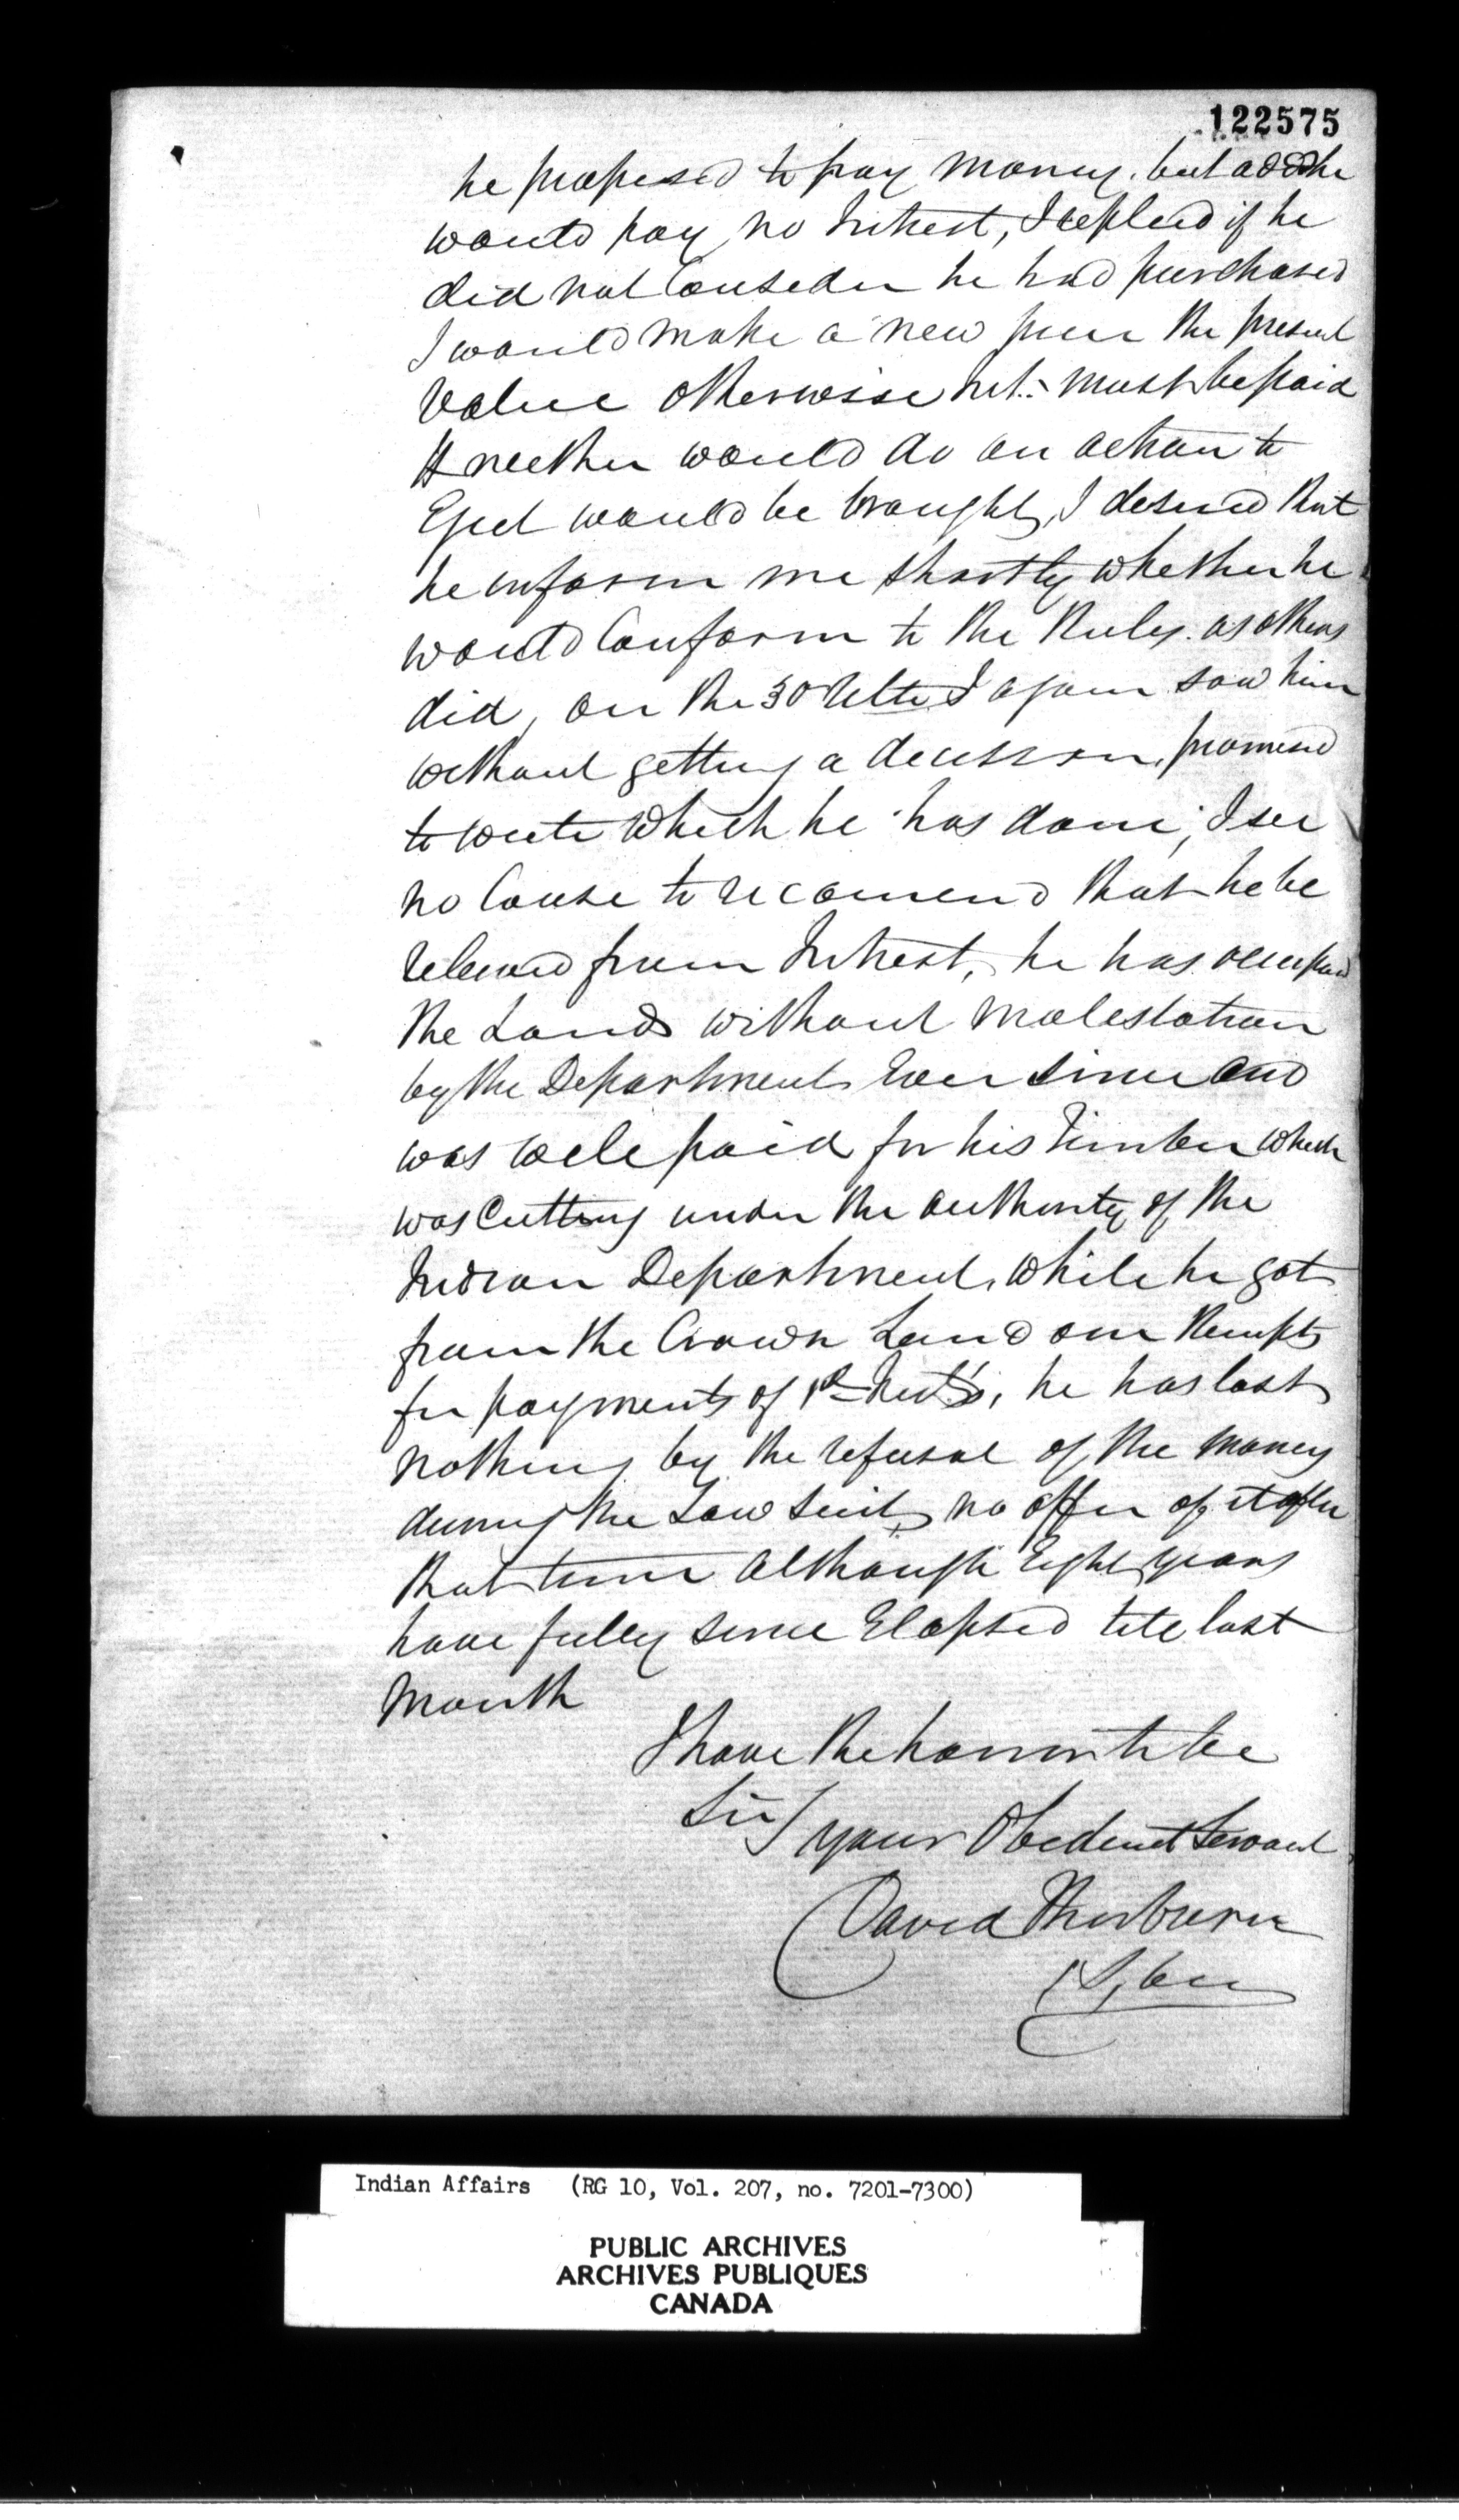 122575
he proposed to pay money. but add he
would pay no Intrest, I replied if he
did not Consider he had purchased
I would make a new price the present
Value otherwise Int. must be paid
If neither would do an action to
Eject would be brought, I desired that
he inform me shortly whether he
would Conform to the Rules as others
did, on the 30 Ulto I again saw him
without getting a decission, promised
to write which he has done; I see
no Cause to recomend that he be
relieved from Intrest, he has occupied
the Lands without molestation
by the Department Ever since and
was well paid for his Timber which
was Cutting under the authority of the
Indian Department, while he got
from the Crown Land our Receipts
for payments of 1st Inst's, he has lost
nothing by the refusal of the money
during the Law Suit, no offer of it after
that time although Eight years
have fully since Elapsed till last
Month
I have the honor to be
Sir/
your Obedient Servant
David Thorburn
Indian Affairs (RG 10, Vol. 207, no. 7201-7300)
PUBLIC ARCHIVES
ARCHIVES PUBLIQUES
CANADA